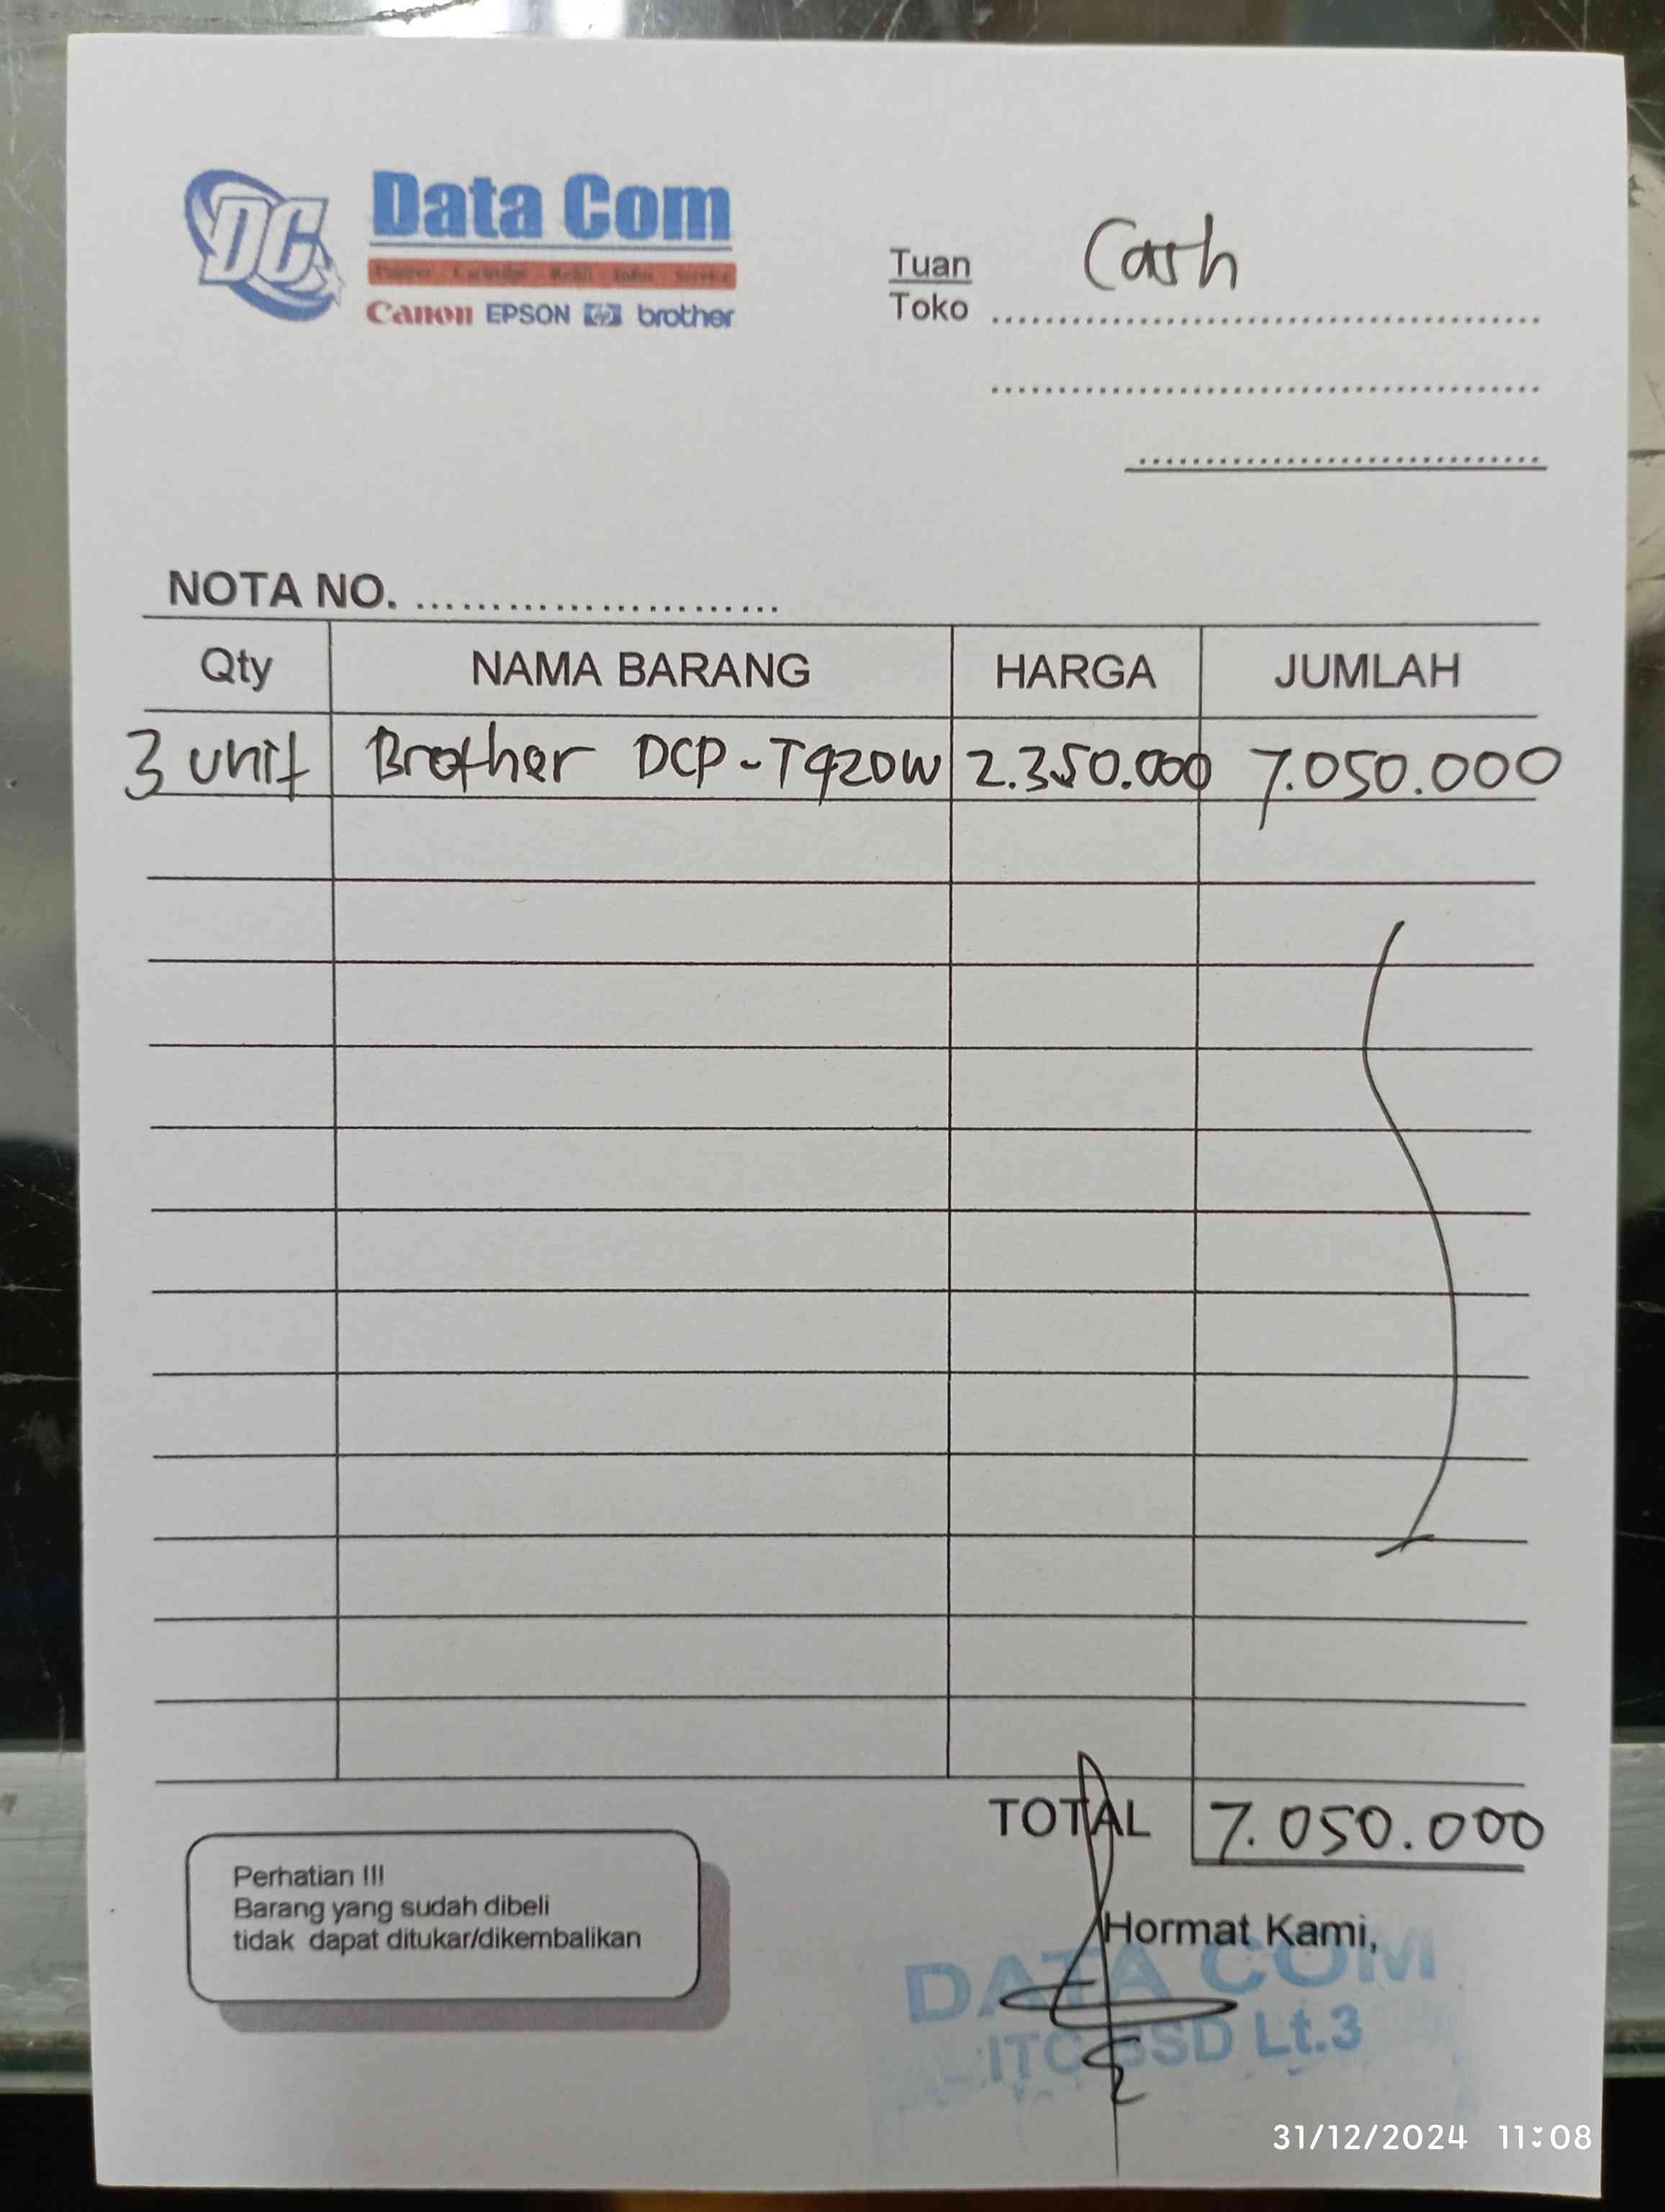 DC
Data Com
Printer Cartridge Refill Infus Service
Canon EPSON hp brother
Tuan Cash
Toko
NOTA NO.
Qty NAMA BARANG HARGA JUMLAH
3 unit Brother DCP-T420W 2.350.000 7.050.000
TOTAL 7.050.000
Perhatian !!!
Barang yang sudah dibeli
tidak dapat ditukar/dikembalikan
Hormat Kami,
DATA COM
ITC BSD Lt.3
31/12/2024 11:08